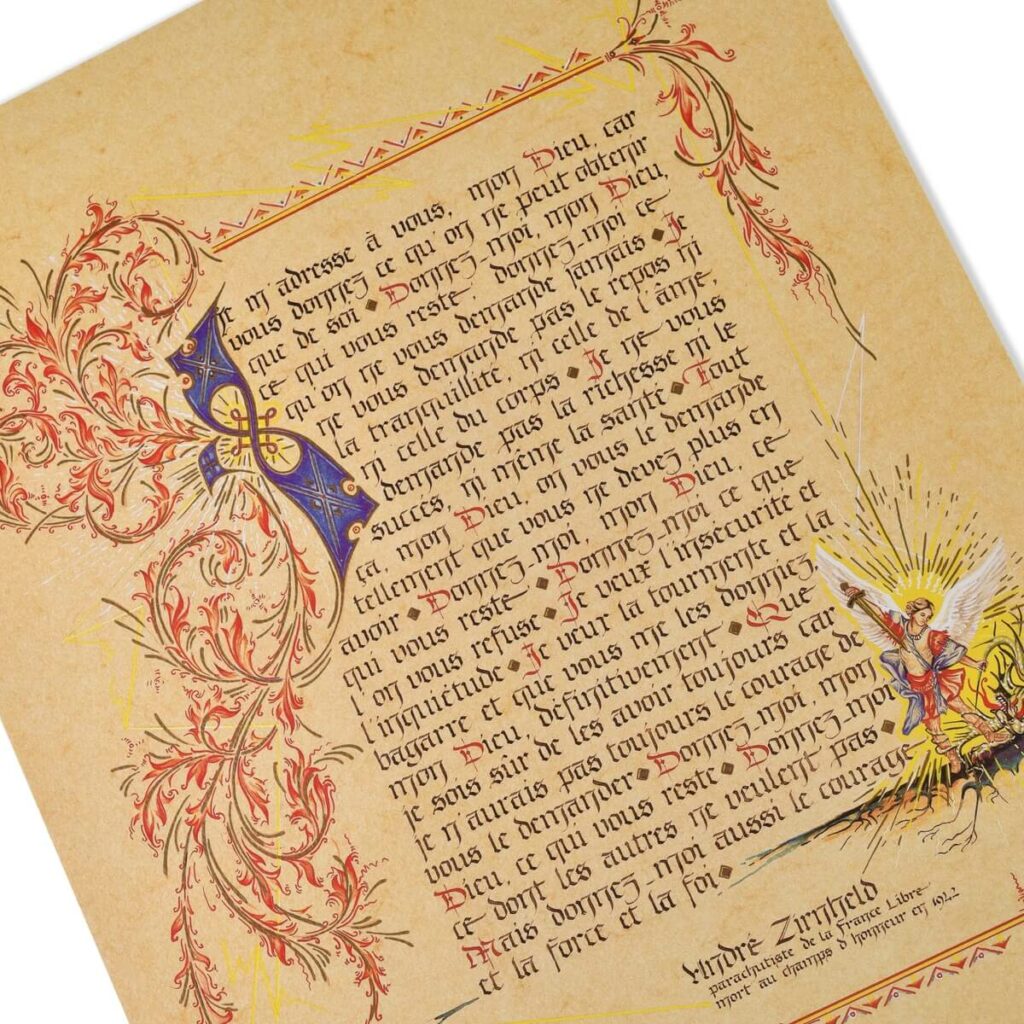 Je m'adresse à vous, mon Dieu, car
vous donnez ce qu'on ne peut obtenir
que de soi ◆ Donnez-moi, mon Dieu,
ce qui vous reste, donnez-moi ce
qu'on ne vous demande jamais ◆ Je
ne vous demande pas le repos ni
la tranquillité, ni celle de l'âme,
ni celle du corps ◆ Je ne vous
demande pas la richesse ni le
succès, ni même la santé ◆ Tout
ça, mon Dieu, on vous le demande
tellement que vous ne devez plus en
avoir ◆ Donnez-moi, mon Dieu, ce
qui vous reste ◆ Donnez-moi ce que
l'on vous refuse ◆ Je veux l'insécurité et
l'inquiétude ◆ Je veux la tourmente et la
bagarre et que vous me les donniez,
mon Dieu, définitivement ◆ Que
je sois sûr de les avoir toujours car
je n'aurais pas toujours le courage de
vous le demander ◆ Donnez-moi, mon
Dieu, ce qui vous reste ◆ Donnez-moi
ce dont les autres ne veulent pas ◆
Mais donnez-moi aussi le courage
et la force et la foi ◆
André Zirnheld
parachutiste de la France Libre
mort au champs d'honneur en 1942